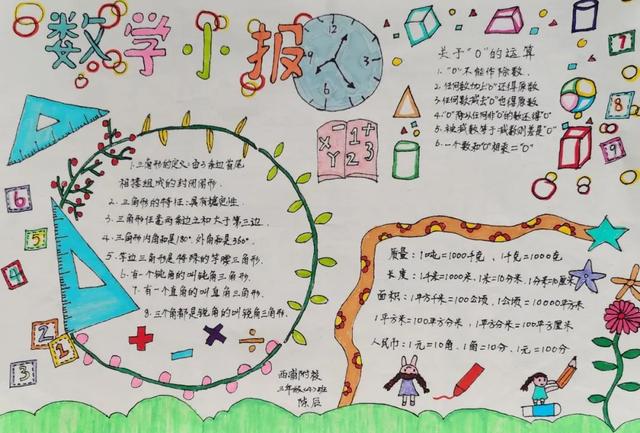 数学小报
关于"0"的运算
1."0"不能作除数.
2.任何数加上"0"还得原数
3.任何数减去"0"也得原数
4."0"除以任何非"0"的数还得"0"
5.被减数等于减数则差是"0"
6.一个数和"0"相乘="0"
1.三角形的定义:由3条边首尾
相接组成的封闭图形.
2.三角形的特征:具有稳定性.
3.三角形任意两条边之和大于第三边.
4.三角形内角和是180°.外角和是360°.
5.等边三角形是特殊的等腰三角形.
6.有一个钝角的叫钝角三角形.
7.有一个直角的叫直角三角形.
8.三个角都是锐角的叫锐角三角形.
质量:1吨=1000千克,1千克=1000克
长度:1千米=1000米,1米=10分米,1分米=10厘米
面积:1平方千米=100公顷,1公顷=10000平方米
1平方米=100平方分米,1平方分米=100平方厘米
人民币:1元=10角,1角=10分,1元=100分
附校
三年级(4)班
陈辰
12
1
2
3
4
5
6
7
8
9
X
Y
1+
23